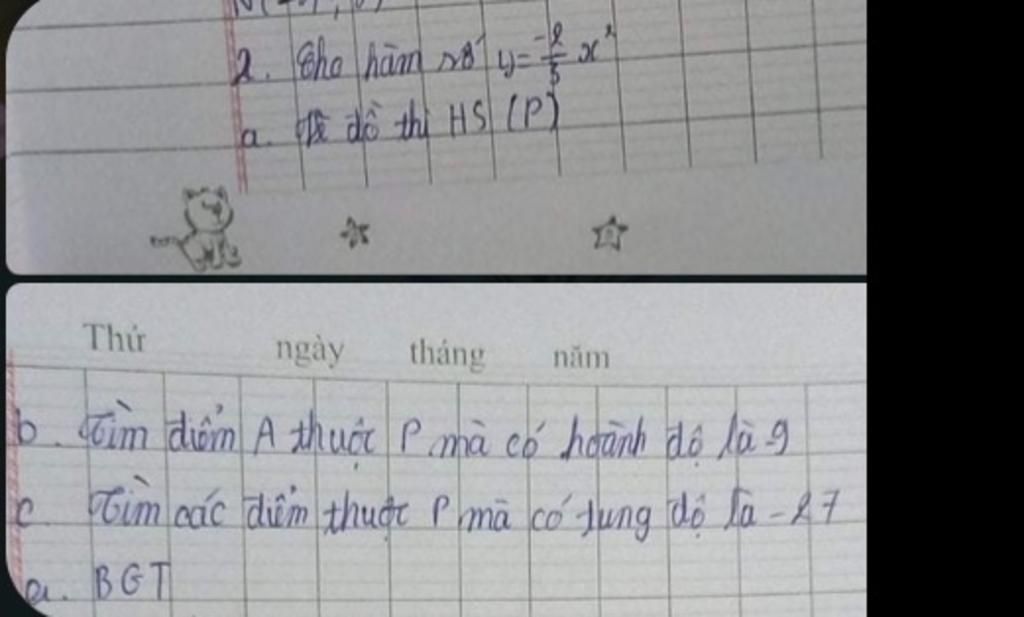 2. Cho hàm số y = -2/3 x²
a. Vẽ đồ thị HS (P)
Thứ ngày tháng năm
b. Tìm điểm A thuộc P mà có hoành độ là 9
c. Tìm các điểm thuộc P mà có tung độ là -27
a. BGT